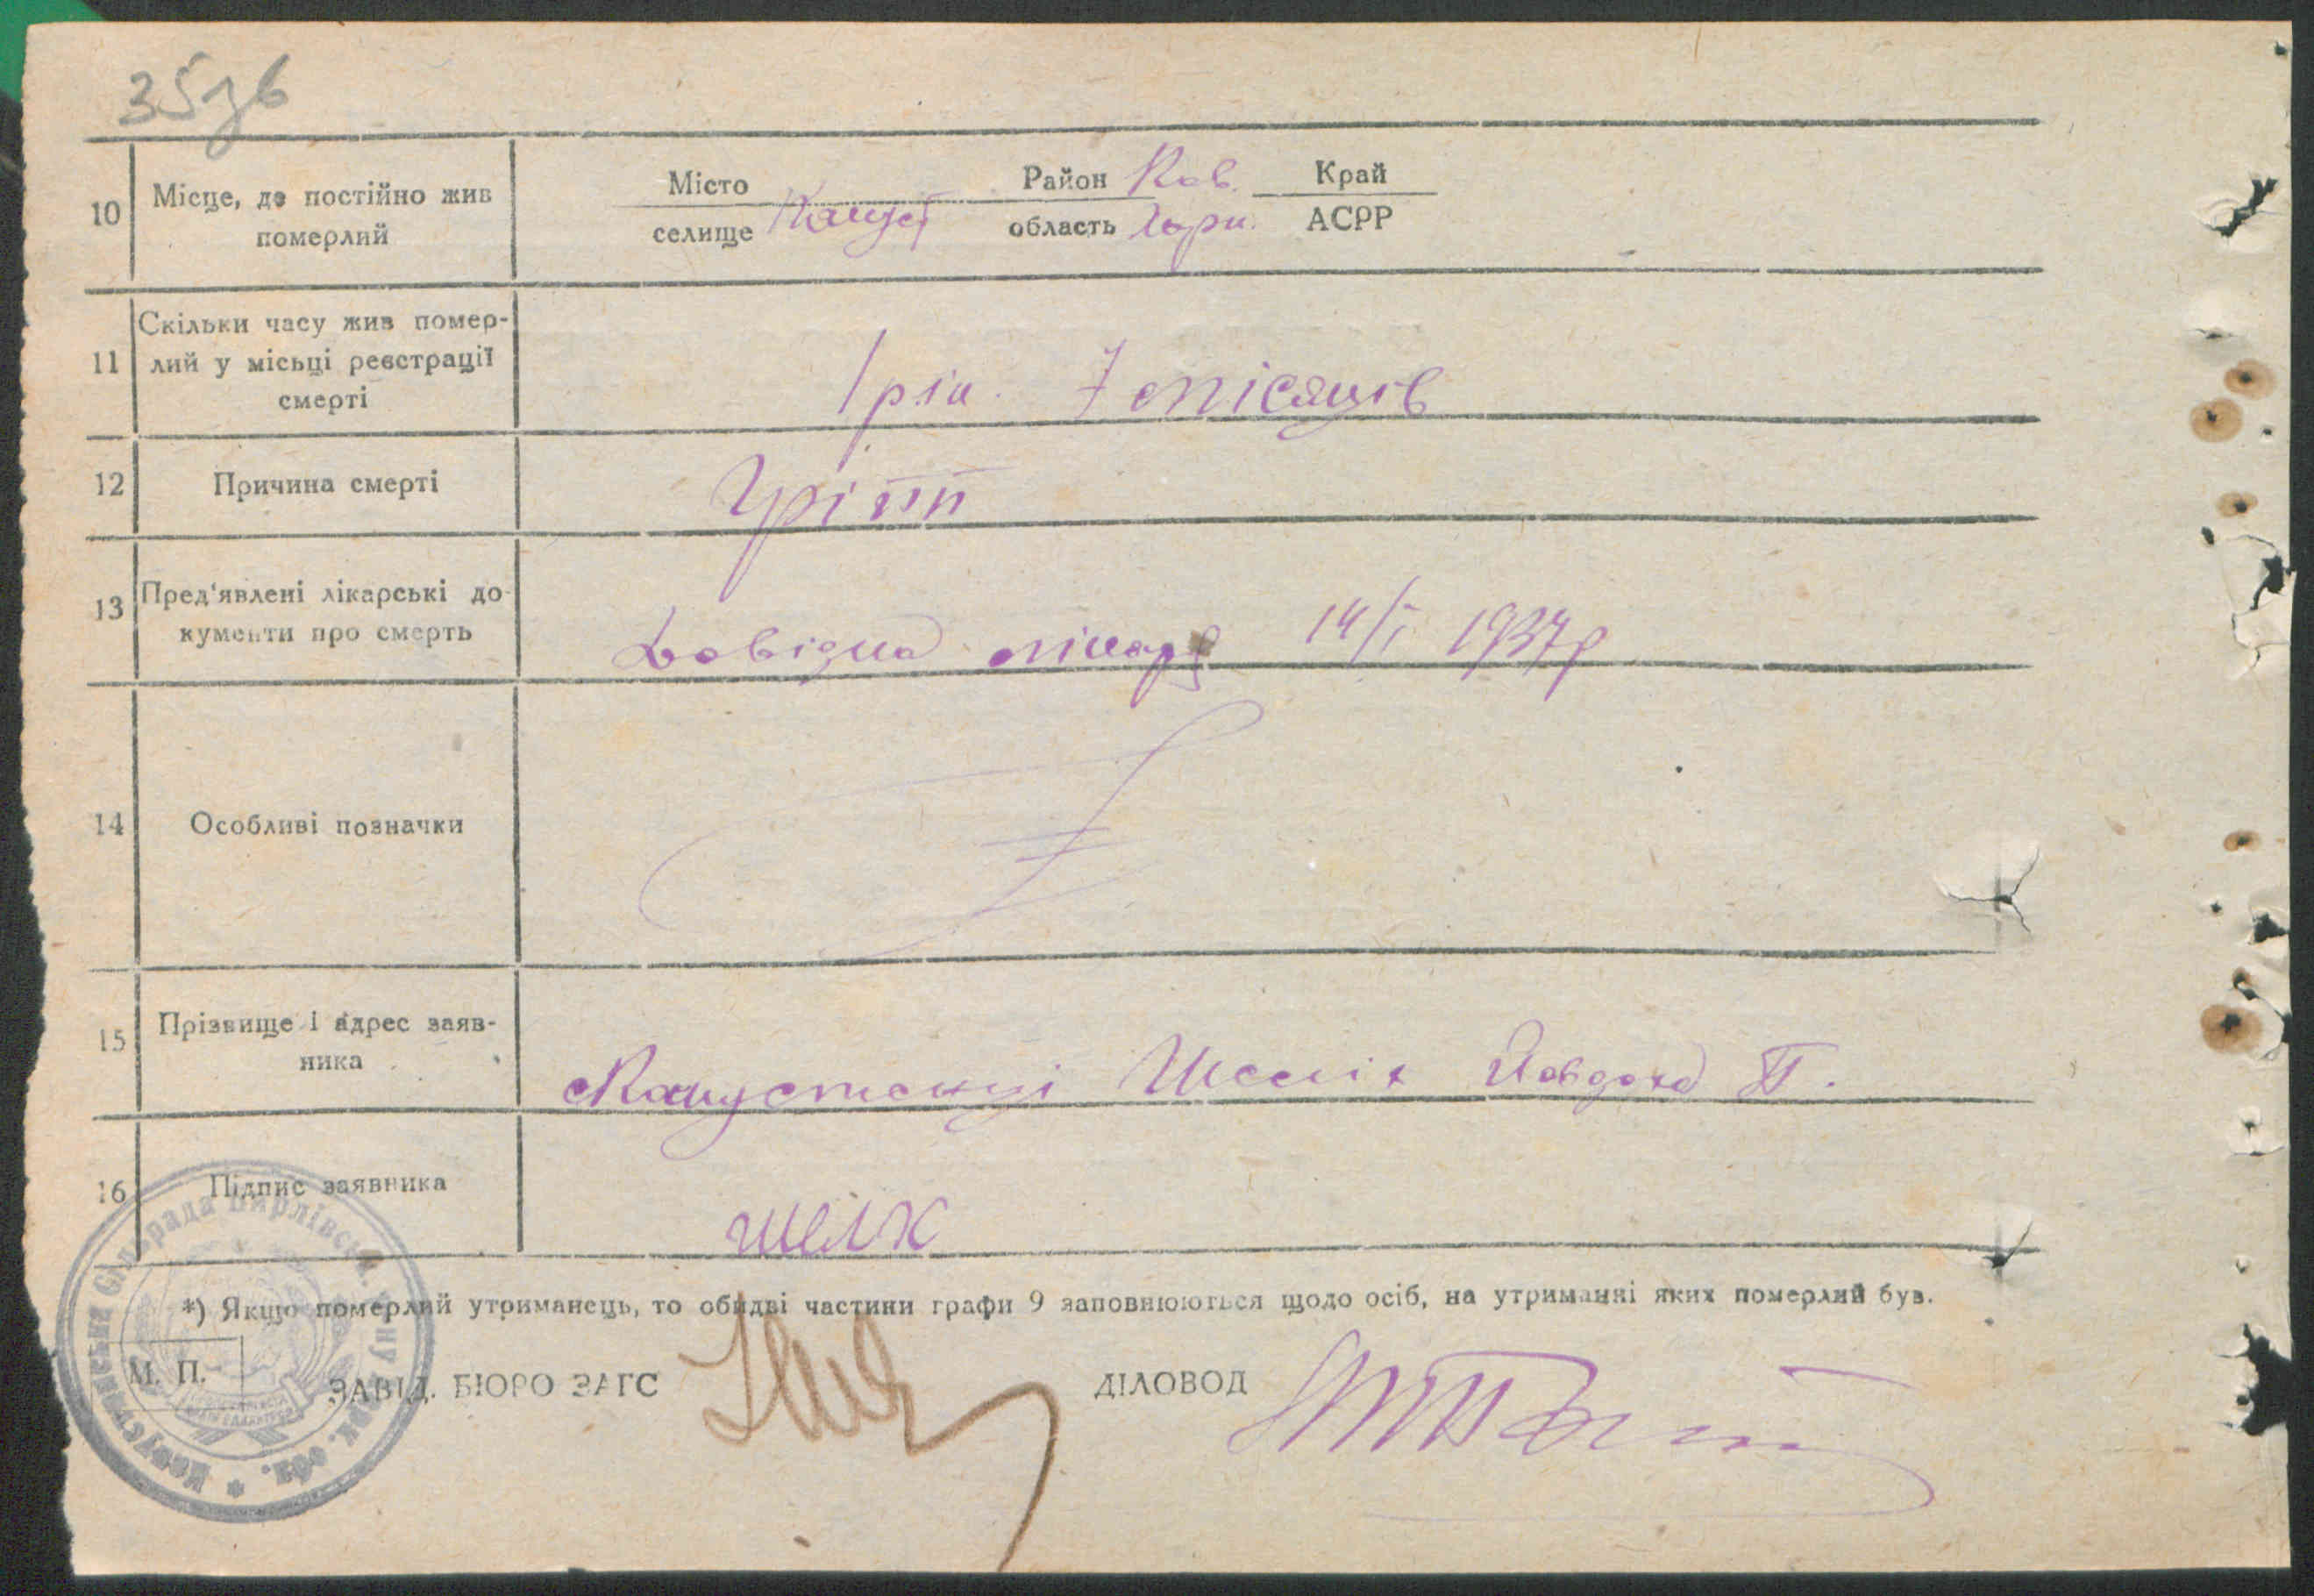 35зв
10 Місце, де постійно жив померлий
Місто селище Капуст Район Ков. область Харк. Край АСРР
11 Скільки часу жив помер-
лий у місьці реєстрації
смерті
1 рік. 7 місяців
12 Причина смерті
Гріпп
13 Пред'явлені лікарські до-
кументи про смерть
Довідка лікаря 14/I 1937р
14 Особливі позначки
15 Прізвище і адрес заяв-
ника
Капустенці Явдоха П.
16 Підпис заявника
*) Якщо померлий утриманець, то обидві частини графи 9 заповнюються щодо осіб, на утриманні яких померлий був.
М. П.
ЗАВІД. БЮРО ЗАГС
ДІЛОВОД